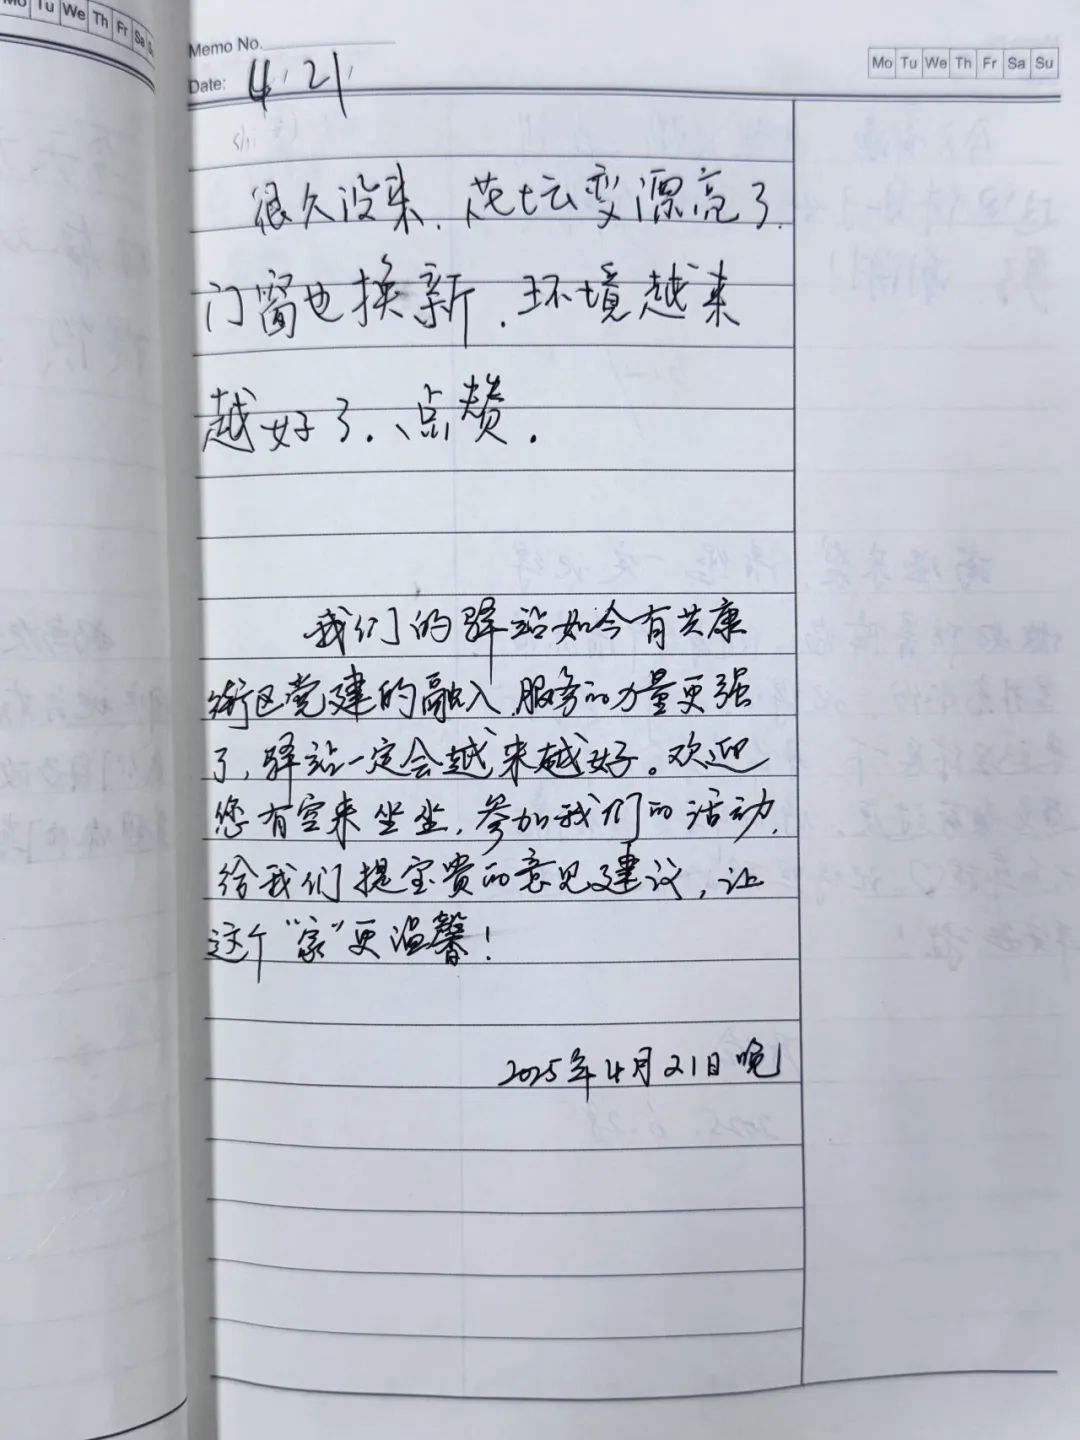 Mo Tu We Th Fr Sa Su
Memo No.
Mo Tu We Th Fr Sa Su
Date: 4.21
很久没来,花坛变漂亮了.
门窗也换新,环境越来
越好了.、点赞.
我们的驿站如今有共康
街区党建的融入,服务的力量更强
了,驿站一定会越来越好。欢迎
您有空来坐坐,参加我们的活动,
给我们提宝贵的意见建议,让
这个“家”更温馨!
2025年4月21日晚